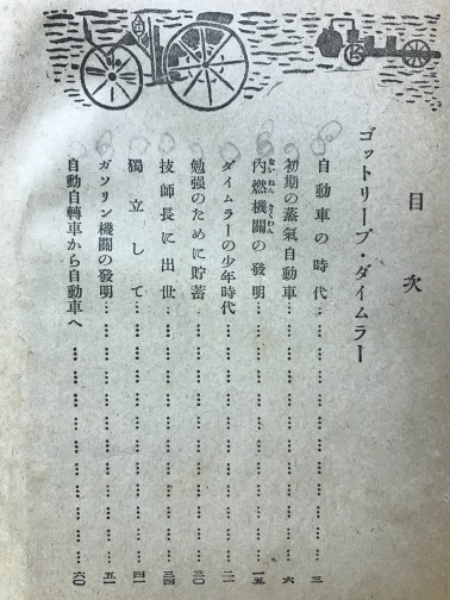 目次
ゴットリーブ・ダイムラー
自動車の時代…………………………三
初期の蒸氣自動車…………………………六
內燃機關の發明…………………………一五
ないねんきくわん
ダイムラーの少年時代…………………………二一
勉强のために貯蓄…………………………三〇
技師長に出世…………………………三四
獨立して…………………………四一
ガソリン機關の發明…………………………五一
自動自轉車から自動車へ…………………………六〇